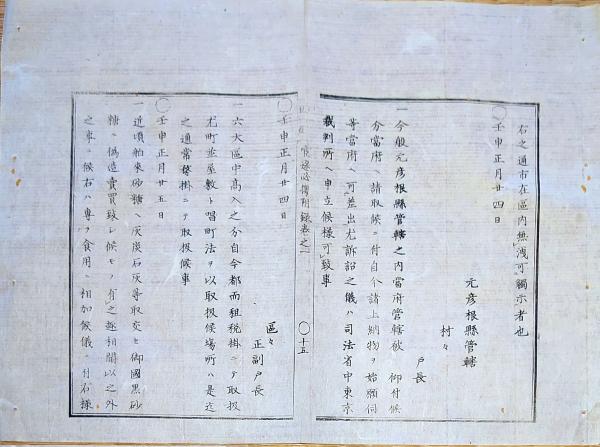 右之通市在區内無洩可觸示者也
〇壬申正月廿四日
元彦根縣管轄
村々
戸長
一今般元彦根縣管轄之内當府管轄被 仰付候
分當府ヘ請取候ニ付自今諸上納物ヲ始願伺
等當府ヘ可差出尤訴訟之儀ハ司法省中東京
裁判所ヘ申立候様可致事
〇十五
〇壬申正月廿四日
區々
正副戸長
一六大區中高入之分自今都而租税掛ニテ取扱
尤町並屋敷ト唱町法ヲ以取扱候場所ハ是迄
之通常務掛ニテ取扱候事
〇壬申正月廿五日
一近頃舶來砂糖ヘ灰炭石灰等取交セ御國黒砂
糖ニ偽造賣買致シ候モノ有之趣相聞以之外
之事ニ候右ハ專ラ食用ニ相加候儀ニ付右様